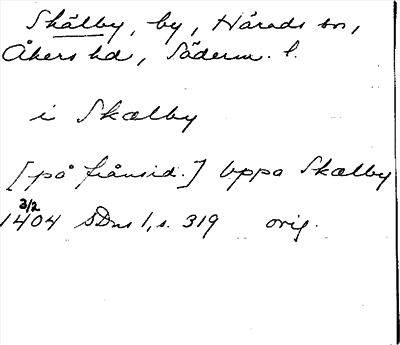 Skälby, by, Härads sn,
Åkers hd, Söderm. l.
i Skælby
[på frånsid.] vppa Skælby
3/2
1404 SDns 1, s. 319 orig.